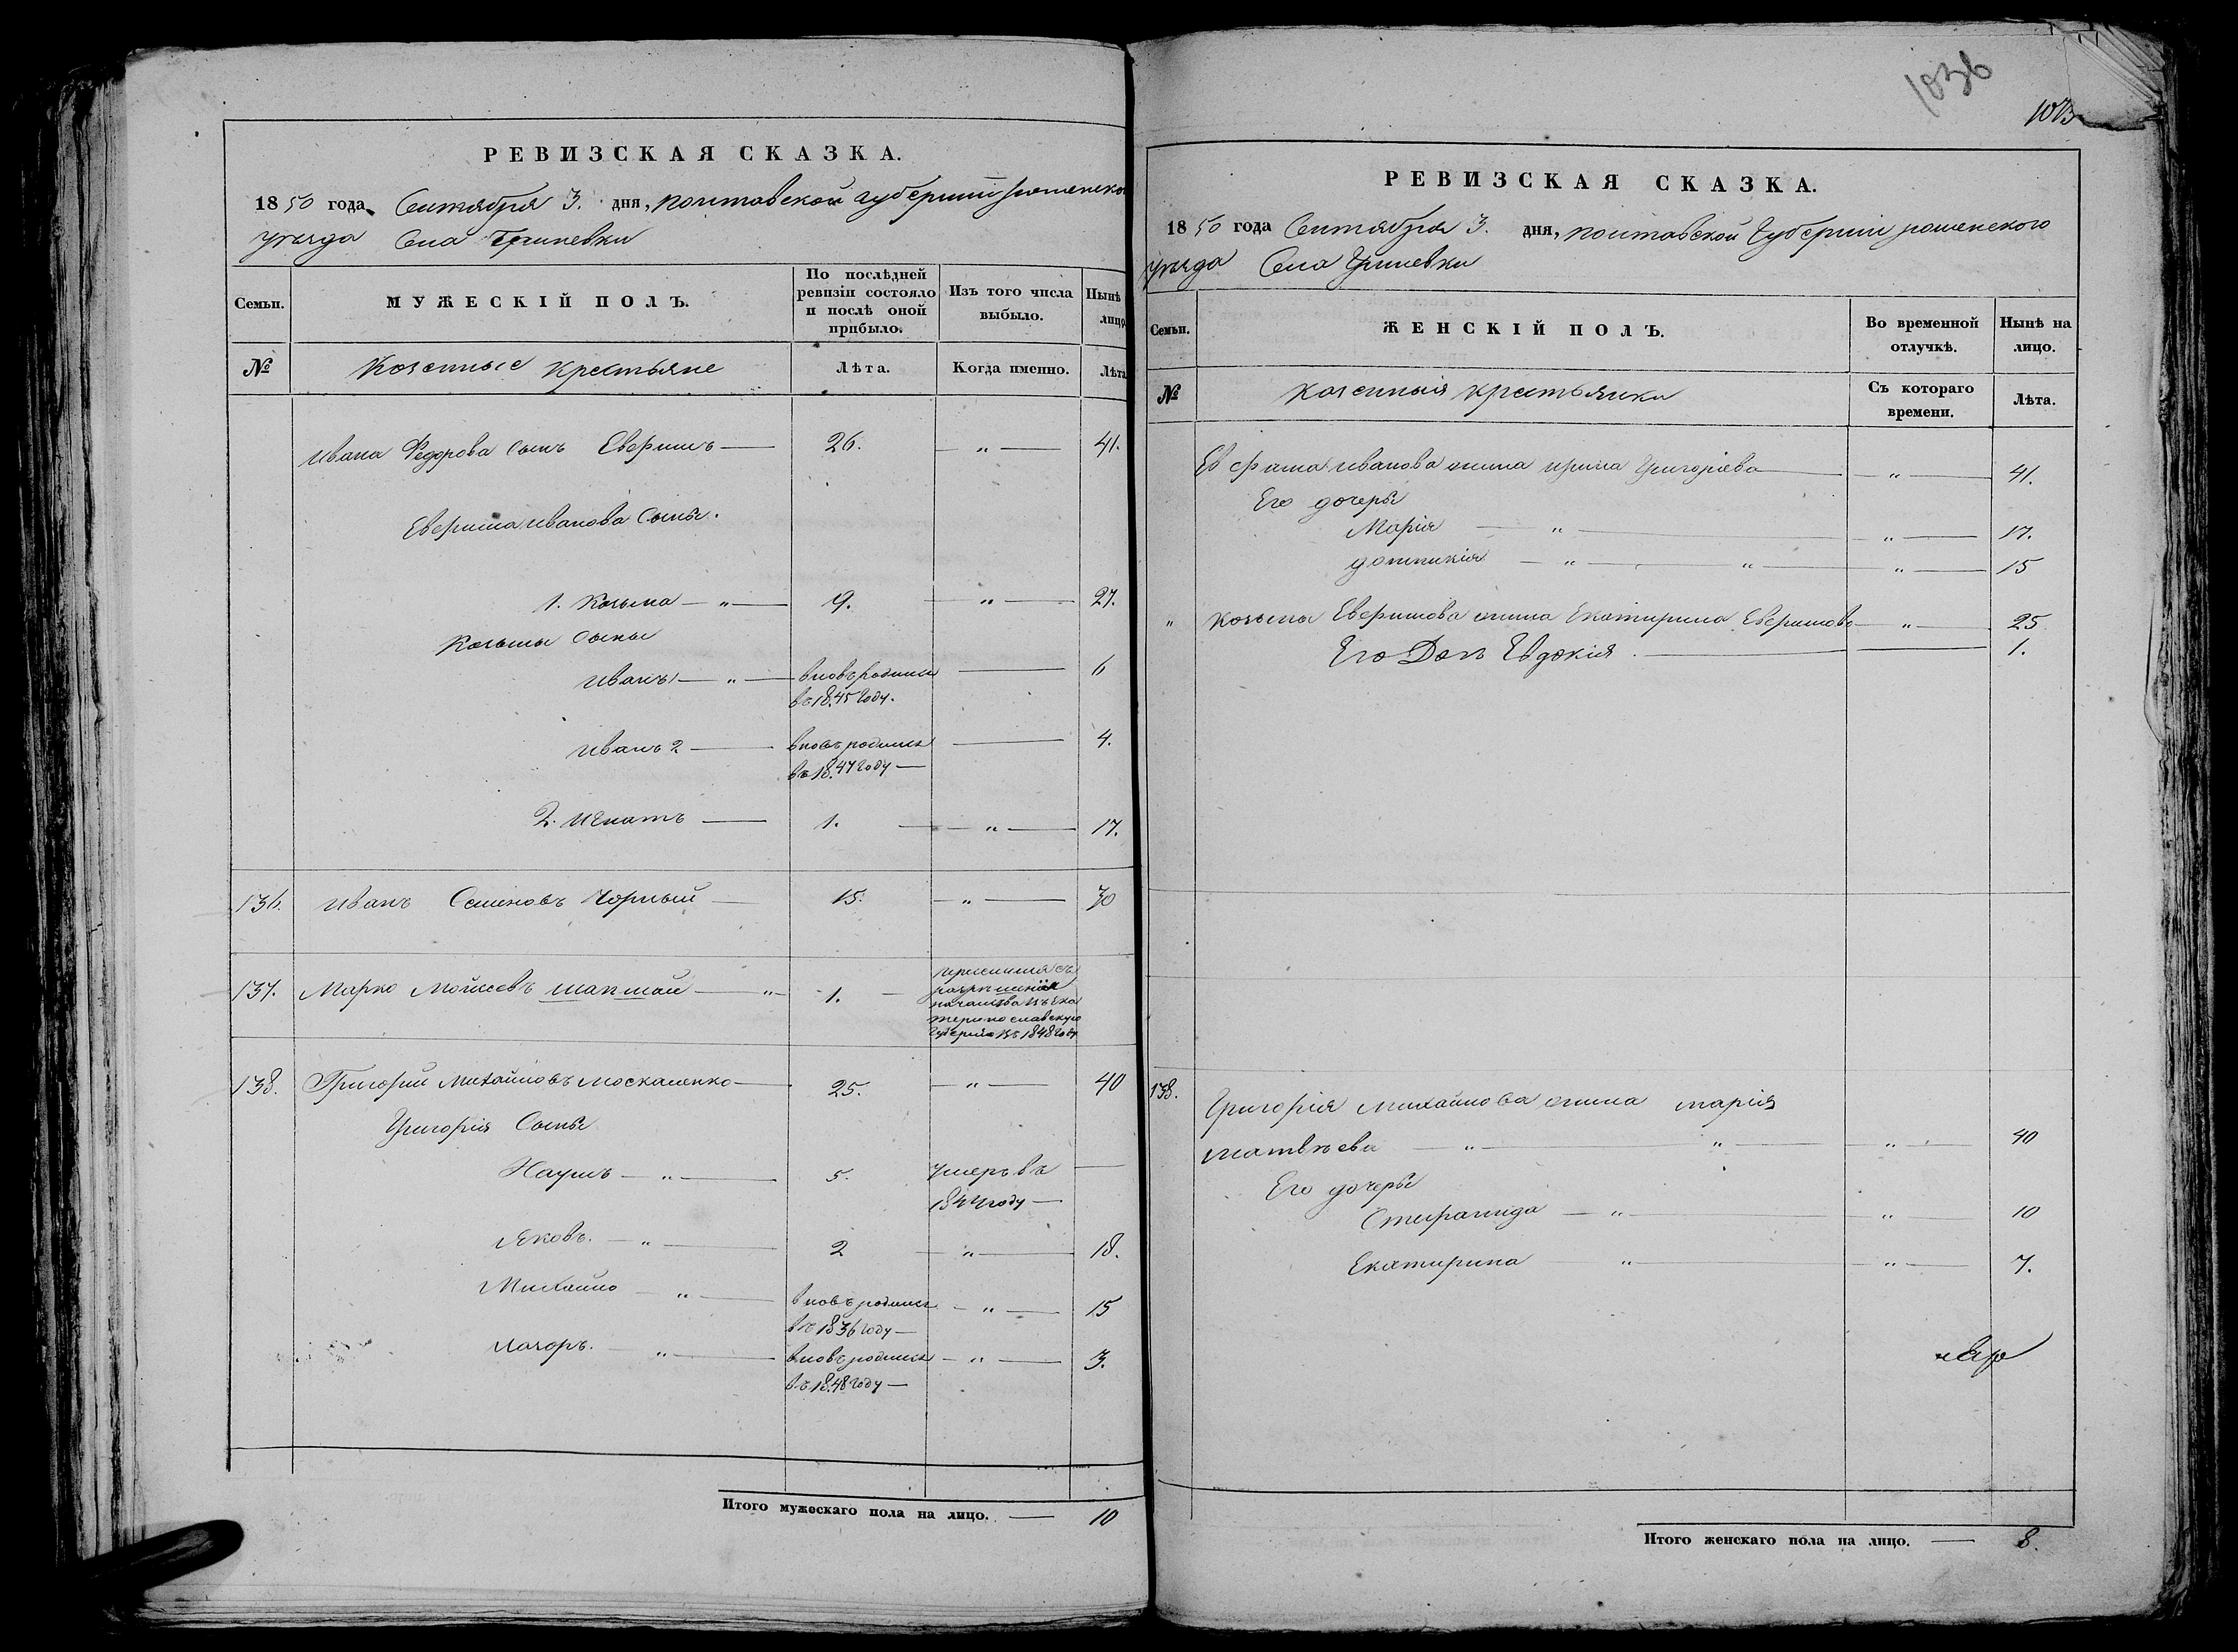 РЕВИЗСКАЯ СКАЗКА.
1850 года Сентября 3. дня, полтавской Губернии роменского
уезда Села Гриневки
Семьи. МУЖЕСКІЙ ПОЛЪ. По послѣдней ревизіи состояло и послѣ оной прибыло. Изъ того числа выбыло. Нынѣ лицо
№ Козенные крестьяне Лѣта. Когда именно. Лѣта
Ивана Федорова сынъ 26. „ 41.
Иванова Сыны.
1. Козьма „ 9. „ 27.
Козьмы Сыны
Иванъ 1 „ вновь родился 6
въ 1845 году.
Иванъ 2 вновь родился 4.
въ 1847 году
2. Игнатъ 1. „ 17.
136. Иванъ Семеновъ Чорный 15. „ 30
137. Марко Мойсеевъ шапшай „ 1.
началства въ Ека
теринославскую
Губернію въ 1848 году
138. Григорий Михайловъ москаленко 25. „ 40
Григорія Сыны
Наумъ „ 5. Умеръ въ
1844 году
Яковъ. „ 2 „ 18.
Михайло „ вновь родился „ 15
въ 1836 году
„ вновь родился „ 3.
въ 1848 году
Итого мужескаго пола на лицо. 10
1036
РЕВИЗСКАЯ СКАЗКА.
1850 года Сентября 3. дня, полтавской Губерніи роменского
уезда Села Гриневки
Семьи. ЖЕНСКІЙ ПОЛЪ. Во временной отлучкѣ. Нынѣ на лицо.
№ козенныя крестьянки Съ котораго времени. Лѣта.
Иванова жена ирина Григоріева „ 41.
Его дочеры
Марія „ „ 17.
домникія „ „ „ 15
„ козьмы жена Екатирина „ 25
Его Дочь Евдокія 1.
138. Григорія Михайлова жена марія
матвѣева „ „ „ 40
Его дочеры
„ „ 10
Екатирина „ „ 7.
Итого женскаго пола на лицо. 8.